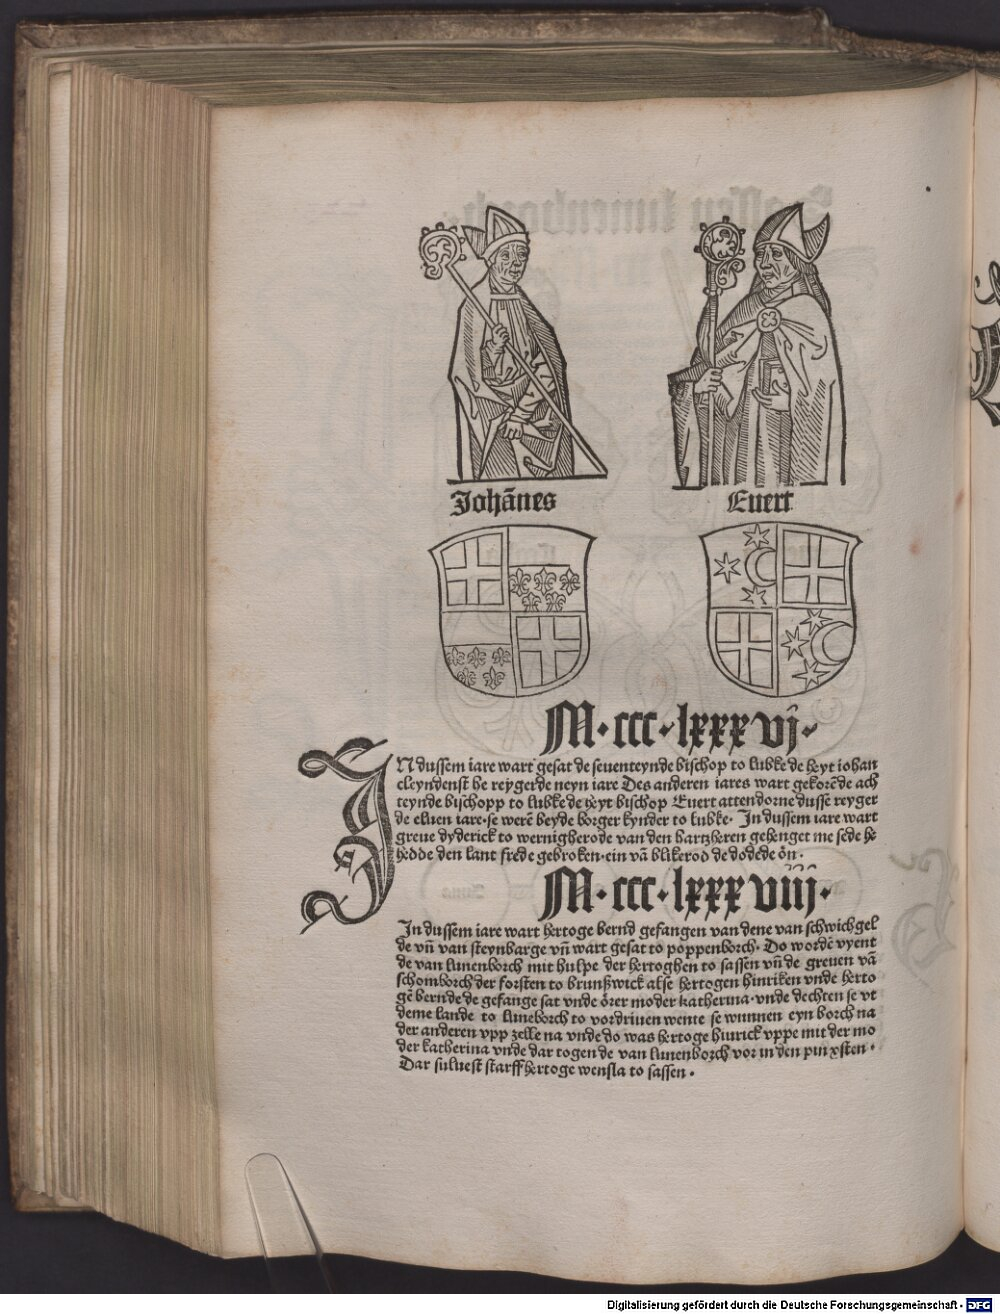 Johãnes
Euert
M·ccc·lxxxvj·
IN dussem iare wart gesat de seuenteynde bischop to lubke de heyt iohan
cleyndenst he reygerde neyn iare Des anderen iares wart gekorẽde ach
teynde bischopp to lubke de heyt bischop Euert attendorne dusse reyger
de eluen iare·se werẽ beyde borger kynder to lubke· In dussem iare wart
greue dyderick to wernigherode van den hartzheren gehenget me sede he
hedde den lant frede gebroken·ein vã blikerod de dodede õn·
M·ccc·lxxxviij·
In dussem iare wart hertoge bernd gefangen van dene van schwichgel
de vñ van steynbarge vñ wart gesat to poppenborch· Do wordẽ vyent
de van lunenborch mit hulpe der hertoghen to sassen vñ de greuen vã
schomborch der forsten to brunßwick alse hertogen hinriken vnde herto
gẽ bernde de gefange sat vnde örer moder katherina·vnde dechten se vt
deme lande to luneborch to vordriuen wente se wunnen eyn borch na
der anderen vpp zelle na vnde do was hertoge hinrick vppe mit der mo
der katherina vnde dar togen de van lunenborch vor in den pinxsten·
Dar suluest starff hertoge wensla to sassen·
Digitalisierung gefördert durch die Deutsche Forschungsgemeinschaft - DFG